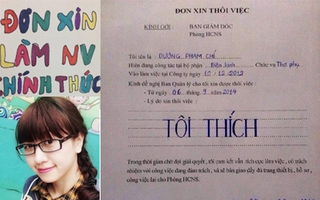 ĐƠN XIN
LÀM NV
CHÍNH THỨC
ĐƠN XIN THÔI VIỆC
KÍNH GỬI: BAN GIÁM ĐỐC
Phòng HCNS.
Tôi tên là DƯƠNG PHẠM CHÍ
Hiện đang công tác tại bộ phận Điện lạnh Chức vụ Thợ phụ
Vào làm việc tại Công ty ngày 10/12/2013
Kính đề nghị Ban Quản lý cho tôi xin được thôi việc:
- Từ ngày 06 tháng 9 năm 2014
- Lý do xin thôi việc
TÔI THÍCH
Trong thời gian chờ đợi giải quyết, tôi cam kết vẫn tích cực làm việc, có trách
nhiệm với công việc đang đảm trách, và sẽ bàn giao đầy đủ trang thiết bị, hồ sơ,
công việc lại cho Phòng HCNS.